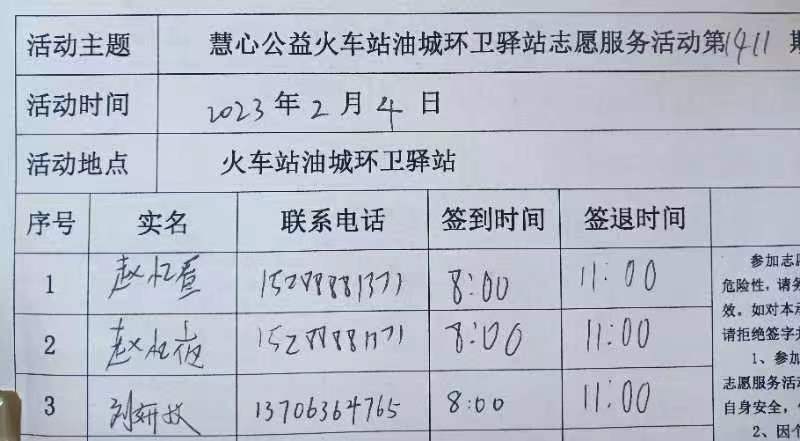 活动主题 慧心公益火车站油城环卫驿站志愿服务活动第1411期
活动时间 2023年2月4日
活动地点 火车站油城环卫驿站
序号 实名 联系电话 签到时间 签退时间
1 赵 8:00 11:00
2 赵 8:00 11:00
3 刘妍 13706364765 8:00 11:00
参加志愿
危险性，请务
效。如对本承
请拒绝签字并
1、参加
志愿服务活动
自身安全，
2、因个